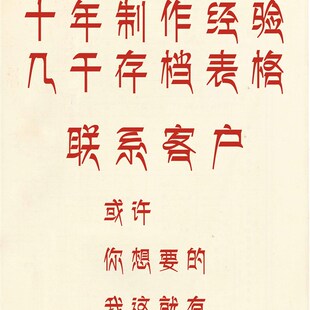 十年制作经验
几千存档表格
联系客户
或许
你想要的
我这就有